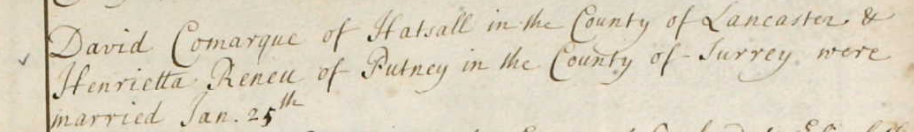 David Comarque of Hatsall in the County of Lancaster &
Henrietta Reneu of Putney in the County of Surrey were
married Jan. 25th